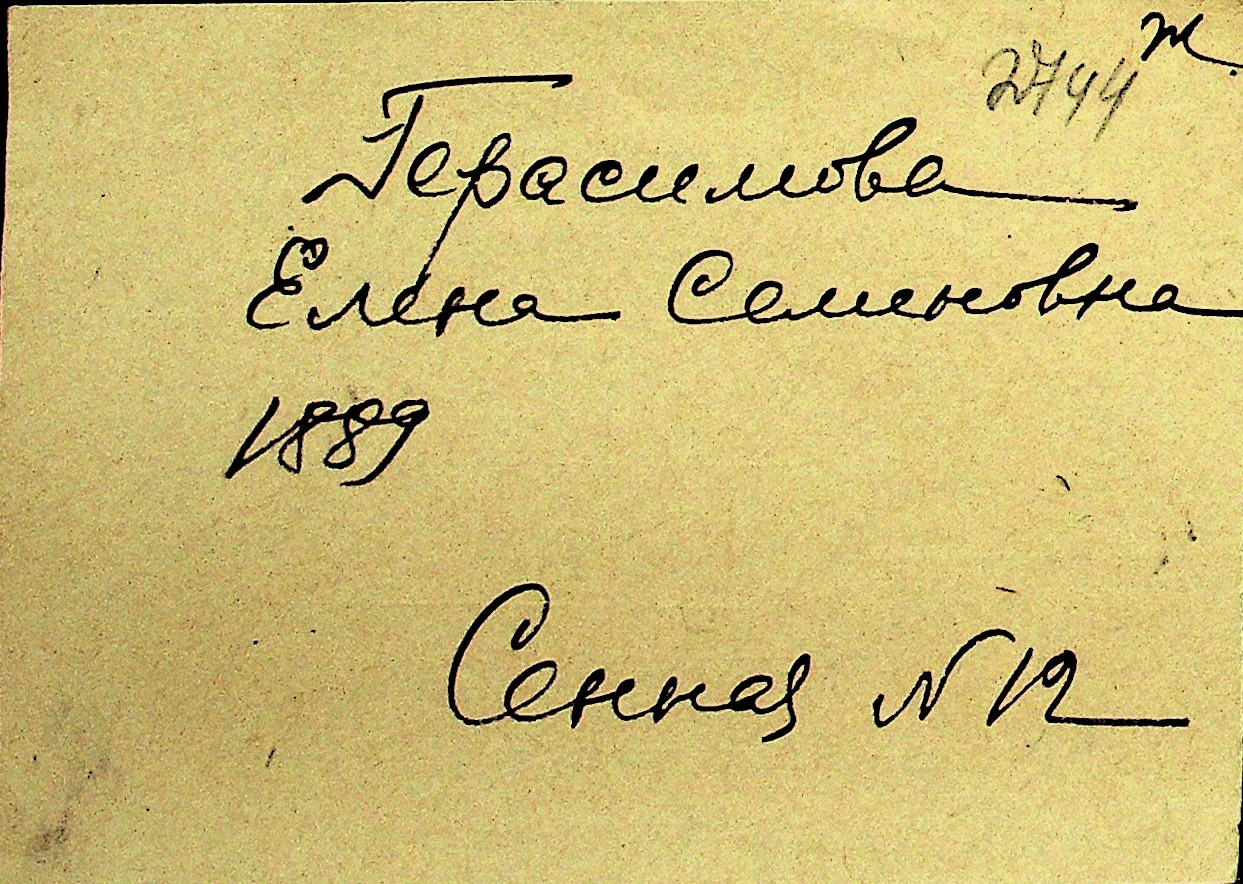 т.
2744
Герасимова
Елена Семеновна
1889
Сенная N 12